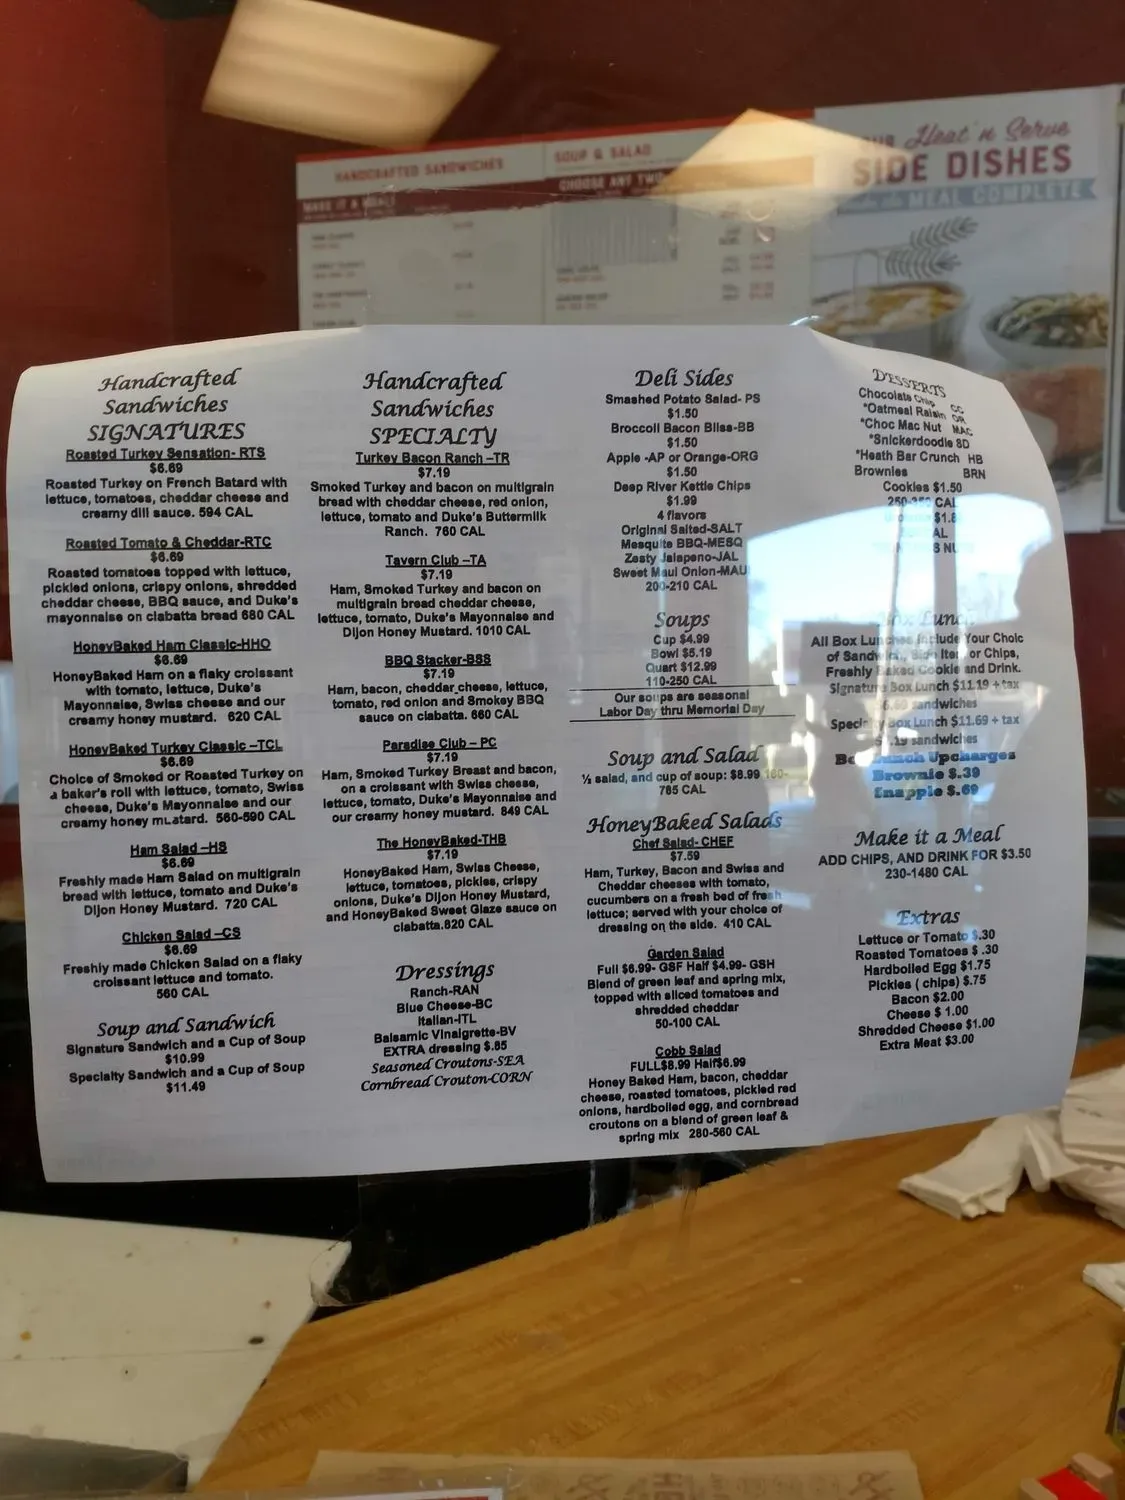 HANDCRAFTED SANDWICHES
MAKE IT A MEAL!
SOUP & SALAD
CHOOSE ANY TWO
Heat 'n Serve
SIDE DISHES
MEAL COMPLETE
Handcrafted
Sandwiches
SIGNATURES
Roasted Turkey Sensation- RTS
$6.69
Roasted Turkey on French Batard with
lettuce, tomatoes, cheddar cheese and
creamy dill sauce. 594 CAL
Roasted Tomato & Cheddar-RTC
$6.69
Roasted tomatoes topped with lettuce,
pickled onions, crispy onions, shredded
cheddar cheese, BBQ sauce, and Duke's
mayonnaise on ciabatta bread 680 CAL
HoneyBaked Ham Classic-HHO
$6.69
HoneyBaked Ham on a flaky croissant
with tomato, lettuce, Duke's
Mayonnaise, Swiss cheese and our
creamy honey mustard. 620 CAL
HoneyBaked Turkey Classic –TCL
$6.69
Choice of Smoked or Roasted Turkey on
a baker's roll with lettuce, tomato, Swiss
cheese, Duke's Mayonnaise and our
creamy honey mustard. 560-590 CAL
Ham Salad –HS
$6.69
Freshly made Ham Salad on multigrain
bread with lettuce, tomato and Duke's
Dijon Honey Mustard. 720 CAL
Chicken Salad –CS
$6.69
Freshly made Chicken Salad on a flaky
croissant lettuce and tomato.
560 CAL
Soup and Sandwich
Signature Sandwich and a Cup of Soup
$10.99
Specialty Sandwich and a Cup of Soup
$11.49
Handcrafted
Sandwiches
SPECIALTY
Turkey Bacon Ranch –TR
$7.19
Smoked Turkey and bacon on multigrain
bread with cheddar cheese, red onion,
lettuce, tomato and Duke's Buttermilk
Ranch. 760 CAL
Tavern Club –TA
$7.19
Ham, Smoked Turkey and bacon on
multigrain bread cheddar cheese,
lettuce, tomato, Duke's Mayonnaise and
Dijon Honey Mustard. 1010 CAL
BBQ Stacker-BSS
$7.19
Ham, bacon, cheddar cheese, lettuce,
tomato, red onion and Smokey BBQ
sauce on ciabatta. 660 CAL
Paradise Club – PC
$7.19
Ham, Smoked Turkey Breast and bacon,
on a croissant with Swiss cheese,
lettuce, tomato, Duke's Mayonnaise and
our creamy honey mustard. 849 CAL
The HoneyBaked-THB
$7.19
HoneyBaked Ham, Swiss Cheese,
lettuce, tomatoes, pickles, crispy
onions, Duke's Dijon Honey Mustard,
and HoneyBaked Sweet Glaze sauce on
ciabatta.820 CAL
Dressings
Ranch-RAN
Blue Cheese-BC
Italian-ITL
Balsamic Vinaigrette-BV
EXTRA dressing $.85
Seasoned Croutons-SEA
Cornbread Crouton-CORN
Deli Sides
Smashed Potato Salad- PS
$1.50
Broccoli Bacon Bliss-BB
$1.50
Apple -AP or Orange-ORG
$1.50
Deep River Kettle Chips
$1.99
4 flavors
Original Salted-SALT
Mesquite BBQ-MESQ
Zesty Jalapeno-JAL
Sweet Maui Onion-MAU
200-210 CAL
Soups
Cup $4.99
Bowl $5.19
Quart $12.99
110-250 CAL
Our soups are seasonal
Labor Day thru Memorial Day
Soup and Salad
½ salad, and cup of soup: $8.99 160-
785 CAL
HoneyBaked Salads
Chef Salad- CHEF
$7.59
Ham, Turkey, Bacon and Swiss and
Cheddar cheeses with tomato,
cucumbers on a fresh bed of fresh
lettuce; served with your choice of
dressing on the side. 410 CAL
Garden Salad
Full $6.99- GSF Half $4.99- GSH
Blend of green leaf and spring mix,
topped with sliced tomatoes and
shredded cheddar
50-100 CAL
Cobb Salad
FULL$8.99 Half$6.99
Honey Baked Ham, bacon, cheddar
cheese, roasted tomatoes, pickled red
onions, hardboiled egg, and cornbread
croutons on a blend of green leaf &
spring mix 280-560 CAL
DESSERTS
Chocolate Chip CC
*Oatmeal Raisin OR
*Choc Mac Nut MAC
*Snickerdoodle SD
*Heath Bar Crunch HB
Brownies BRN
Cookies $1.50
250-350 CAL
Box Lunch
All Box Lunches Include Your Choic
of Sandwich, Side Item or Chips,
Freshly Baked Cookie and Drink.
Signature Box Lunch $11.19 + tax
$6.69 sandwiches
Specialty Box Lunch $11.69 + tax
$7.19 sandwiches
Box Lunch Upcharges
Brownie $.39
Snapple $.69
Make it a Meal
ADD CHIPS, AND DRINK FOR $3.50
230-1480 CAL
Extras
Lettuce or Tomato $.30
Roasted Tomatoes $ .30
Hardboiled Egg $1.75
Pickles ( chips) $.75
Bacon $2.00
Cheese $ 1.00
Shredded Cheese $1.00
Extra Meat $3.00